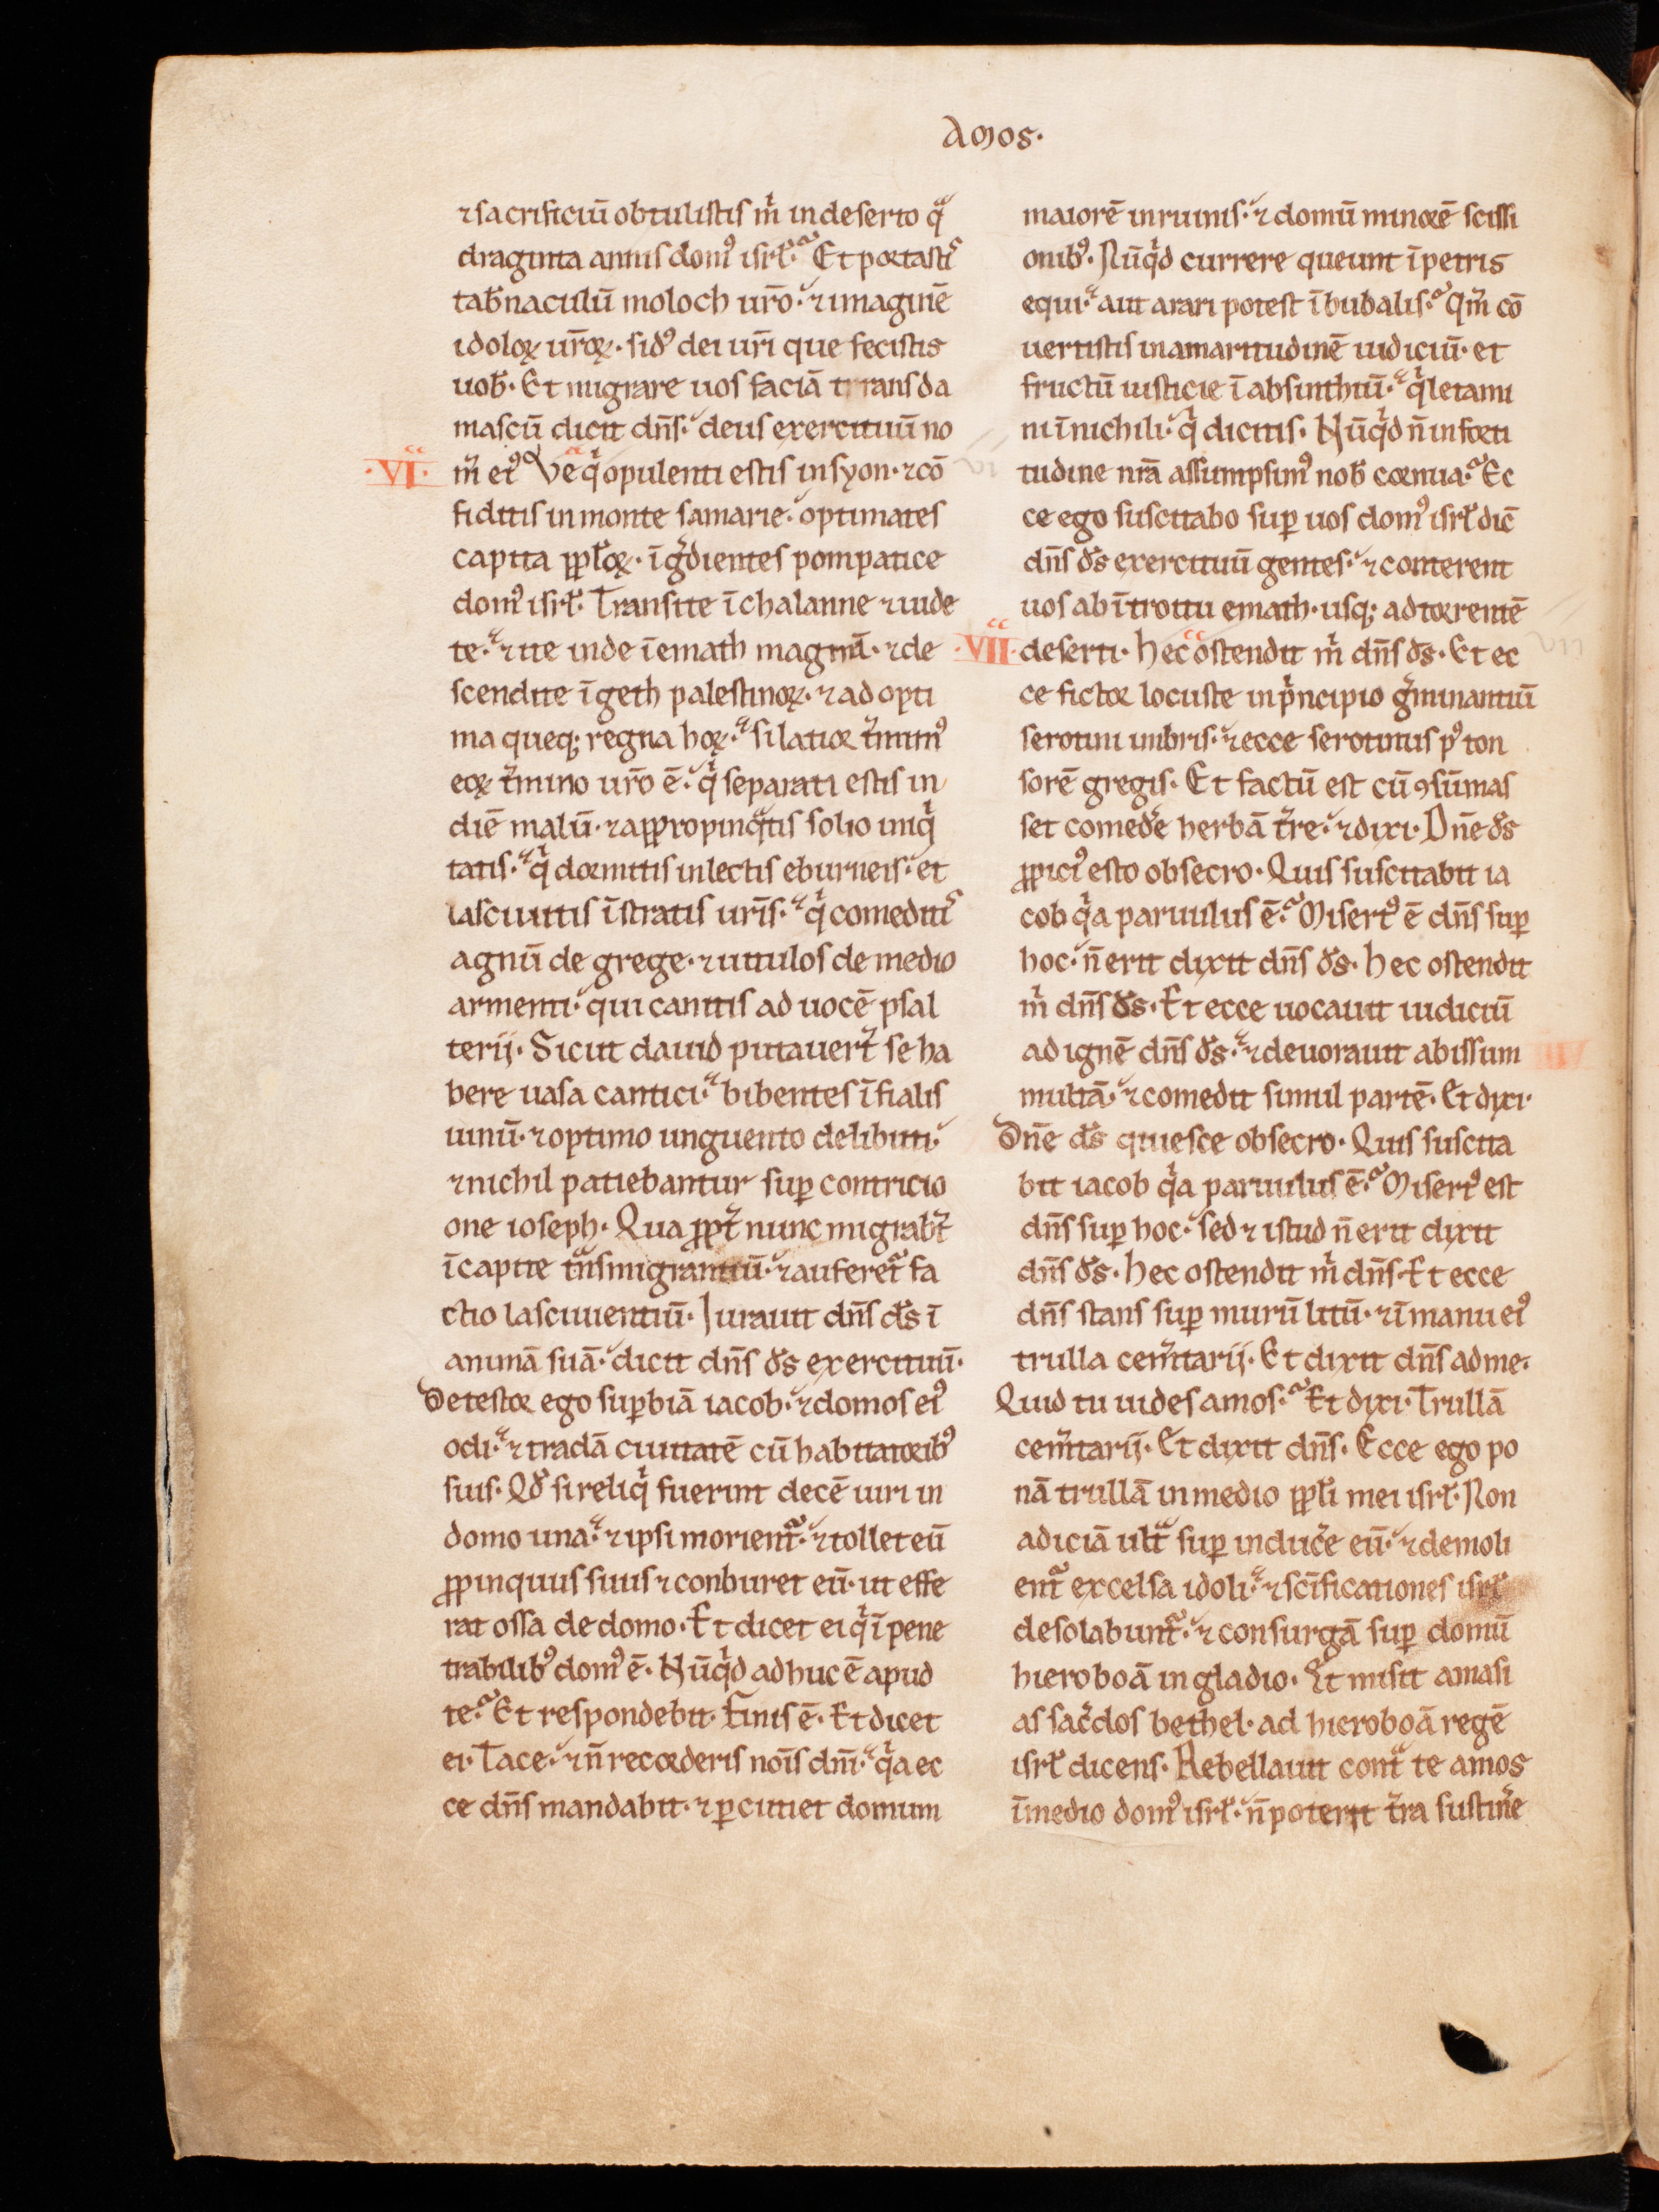 Amos.
⁊ sacrificiū obtulistis m̅ in deserto qͣ
draginta annis domꝰ isrł. Et portastis
tab̅naculū moloch ur̅o. ⁊ imaginē
idoloꝝ ur̅oꝝ. sidꝰ dei ur̅i que fecistis
uob̅. Et migrare uos faciā trans da
mascū dicit dn̅s. deus exercituū no
·VI· m̅ eiꝰ Ve qͥ opulenti estis in syon. ⁊ cō
fiditis in monte samarie. optimates
capita pp̅loꝝ. īgͥdientes pompatice
domꝰ isrł. Transite ī chalanne ⁊ uide
te. ⁊ ite inde ī emath magnā. ⁊ de
scendite ī geth palestinoꝝ. ⁊ ad opti
ma queq; regna hoꝝ. si latior t̅minꝰ
eoꝝ t̅mino ur̅o ē. qͥ separati estis in
diē malū. ⁊ appropinqͣtis solio iniqͥ
tatis. qͥ dormitis in lectis eburneis. et
lasciuitis ī stratis ur̅is. qͥ comeditis
agnū de grege. ⁊ uitulos de medio
armenti. qui canitis ad uocē psal
terij. Sicut dauid putauer̅t se ha
bere uasa cantici. bibentes ī fialis
uinū. ⁊ optimo unguento delibuti.
⁊ nichil patiebantur suꝑ contricio
one ioseph. Qua ꝓpt̅ nunc migrabt̅
ī capite tͣnsmigrantiū. ⁊ auferet᷑ fa
ctio lasciuientiū. Iurauit dn̅s ds̅ ī
animā suā. dicit dn̅s ds̅ exercituū.
Detestor ego suꝑbiā iacob. ⁊ domos eiꝰ
odi. ⁊ tradā ciuitatē cū habitatoribꝰ
suis. Qd̅ si reliqͥ fuerint decē uiri in
domo una. ⁊ ipsi morient᷑. ⁊ tollet eū
ꝓpinquus suus ⁊ conburet eū. ut effe
rat ossa de domo. Et dicet ei qͥ ī pene
trabilibꝰ domꝰ ē. Nūqͥd adhuc ē apud
te. Et respondebit. Finis ē. Et dicet
ei. Tace. ⁊ n̅ recorderis nois̅ dn̅i. qͥa ec
ce dn̅s mandabit. ⁊ ꝑcutiet domum
maiorē in ruinis. ⁊ domū minorē scissi
onibꝰ. Nūqͥd currere queunt ī petris
equi. aut arari potest ī bubalis. Qm̅ cō
uertistis in amaritudinē iudiciū. et
fructū iusticie ī absinthiū. qͥ letami
ni ī nichili. qͥ dicitis. Nūqͥd n̅ in forti
tudine nr̅a assumpsimꝰ nob̅ cornua. Ec
ce ego suscitabo suꝑ uos domꝰ isrł dic̅
dn̅s ds̅ exercituū gentes. ⁊ conterent
uos ab ītroitu emath. usq; ad torrentē
·VII· deserti. Hec ostendit m̅ dn̅s ds̅. Et ec
ce fictor locuste in pͥncipio g̅minantiū
serotini imbris. ⁊ ecce serotinus pꝰ ton
sorē gregis. Et factū est cū ꝯsūmas
set comed̅e herbā t̅re. ⁊ dixi. Dn̅e ds̅
ꝓpiciꝰ esto obsecro. Quis suscitabit ia
cob qͥa paruulus ē. Misertꝰ ē dn̅s suꝑ
hoc. n̅ erit dixit dn̅s ds̅. Hec ostendit
m̅ dn̅s ds̅. Et ecce uocauit iudiciū
ad ignē dn̅s ds̅. ⁊ deuorauit abissum
multā. ⁊ comedit simul partē. Et dixi.
Dn̅e ds̅ quiesce obsecro. Quis suscita
bit iacob qͥa paruulus ē. Misertꝰ est
dn̅s suꝑ hoc. sed ⁊ istud n̅ erit dixit
dn̅s ds̅. Hec ostendit m̅ dn̅s. Et ecce
dn̅s stans suꝑ murū litū. ⁊ ī manu eiꝰ
trulla cem̅tarij. Et dixit dn̅s ad me.
Quid tu uides amos. Et dixi. Trullā
cem̅tarij. Et dixit dn̅s. Ecce ego po
nā trullā in medio pp̅li mei isrł. Non
adiciā ultͣ suꝑ induc̅e eū. ⁊ demoli
ent᷑ excelsa idoli. ⁊ sc̅ificationes isrł
desolabunt᷑. ⁊ consurgā suꝑ domū
hieroboā in gladio. Et misit amasi
as sac̅dos bethel. ad hieroboā regē
isrł dicens. Rebellauit contͣ te amos
ī medio domꝰ isrł. n̅ poterit t̅ra sustin̅e